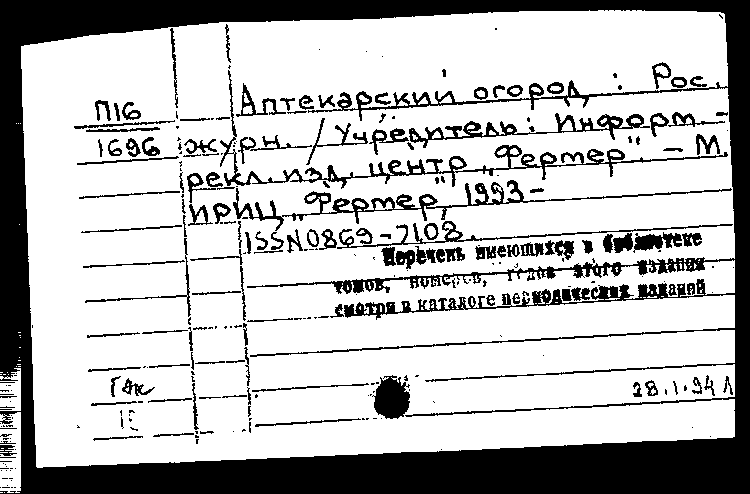 П16
1696
Аптекарский огород : Рос.
журн. / Учредитель: Информ.-
рекл. изд. центр „Фермер“. – М.
ИРИЦ „Фермер“, 1993–
ISSN 0869-7108.
Перечень имеющихся в библиотеке
томов, номеров, годов этого издания
смотри в каталоге периодических изданий
28.1.94